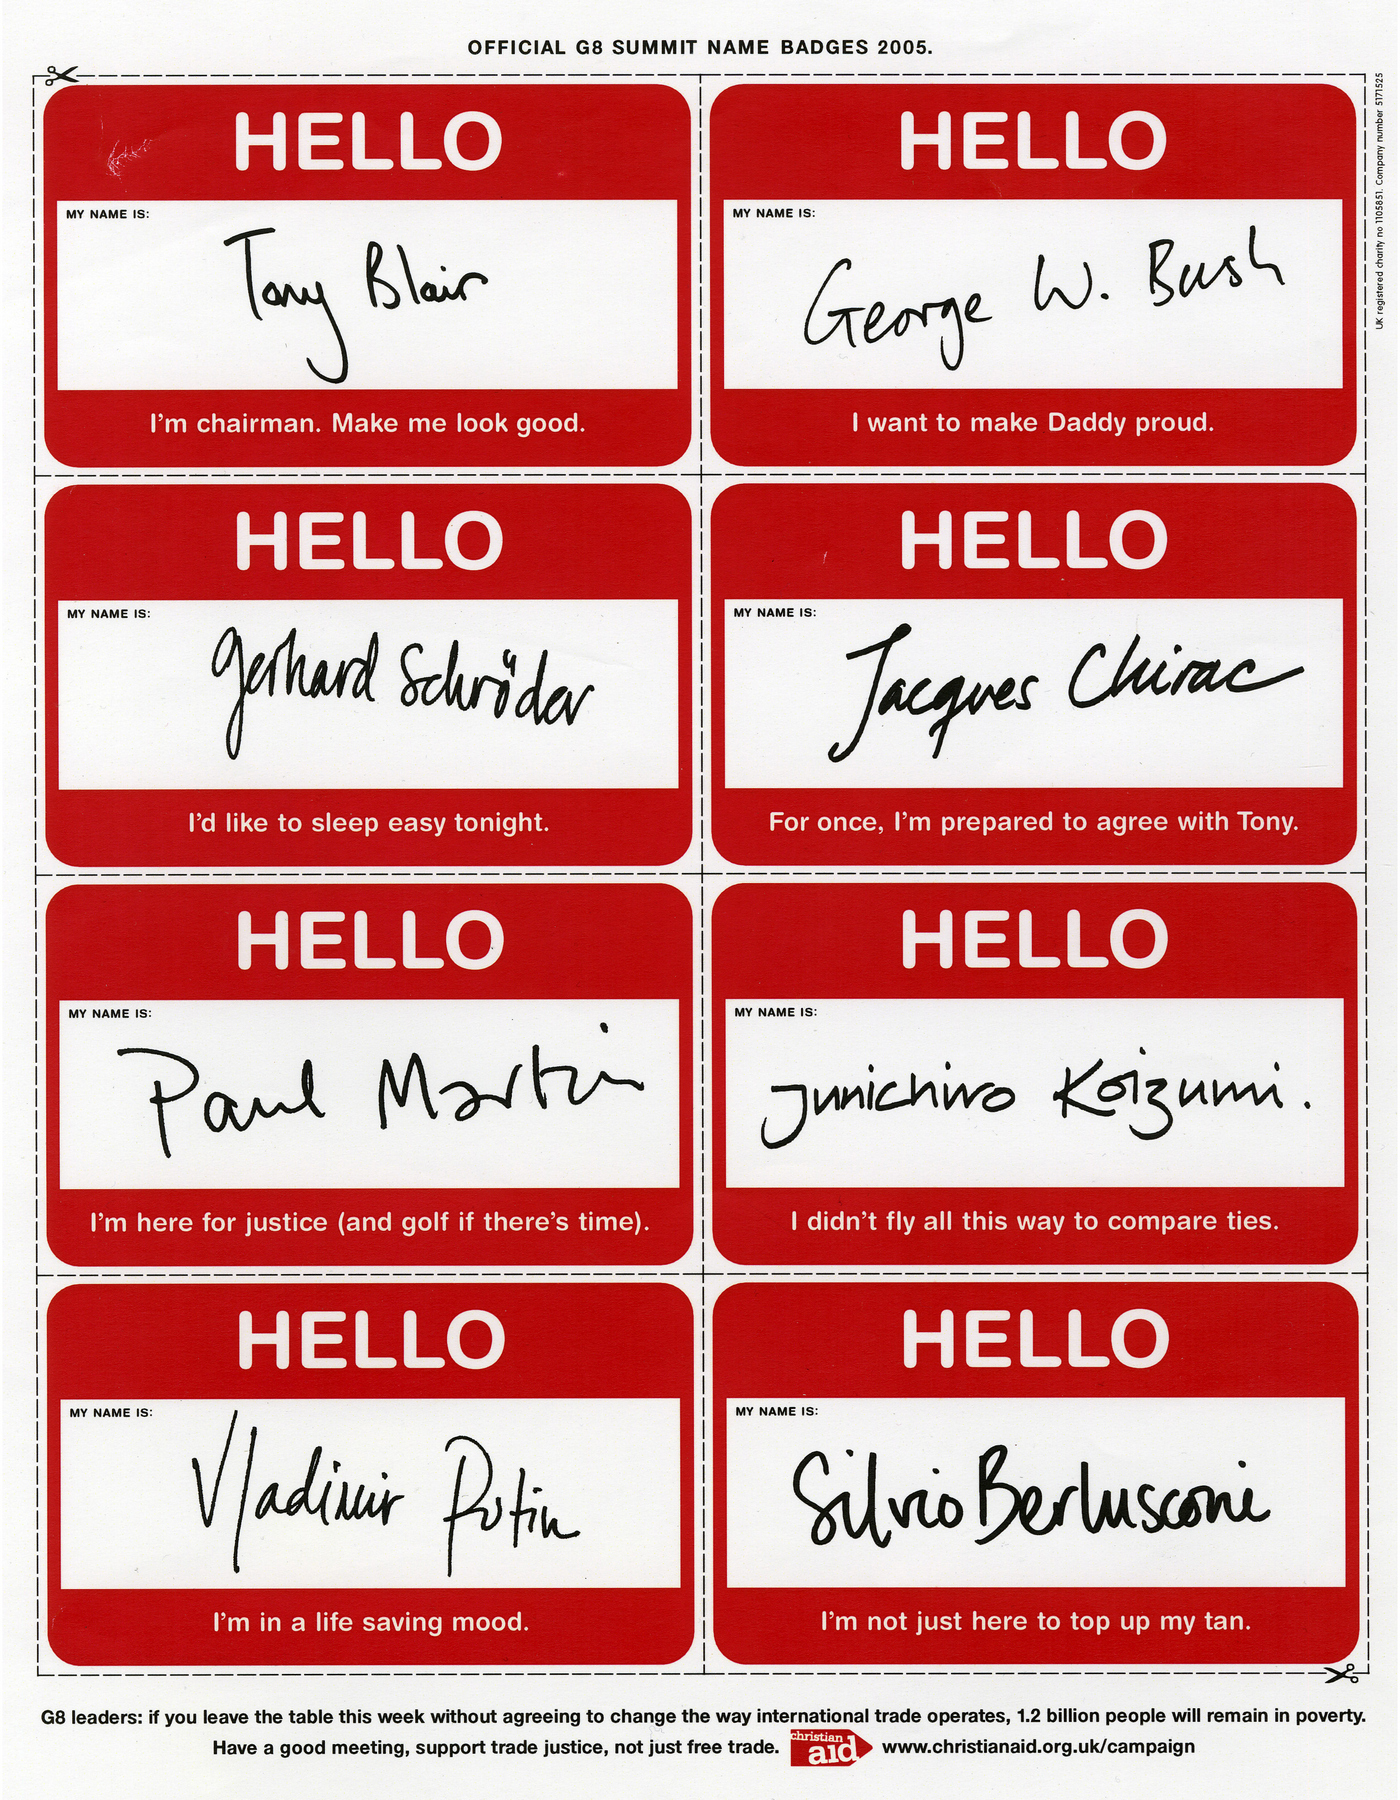 OFFICIAL G8 SUMMIT NAME BADGES 2005.
UK registered charity no 1105851. Company number 5171525
HELLO
MY NAME IS:
Tony Blair
I'm chairman. Make me look good.
HELLO
MY NAME IS:
George W. Bush
I want to make Daddy proud.
HELLO
MY NAME IS:
Gerhard Schröder
I'd like to sleep easy tonight.
HELLO
MY NAME IS:
Jacques Chirac
For once, I'm prepared to agree with Tony.
HELLO
MY NAME IS:
Paul Martin
I'm here for justice (and golf if there's time).
HELLO
MY NAME IS:
Junichiro Koizumi.
I didn't fly all this way to compare ties.
HELLO
MY NAME IS:
Vladimir Putin
I'm in a life saving mood.
HELLO
MY NAME IS:
Silvio Berlusconi
I'm not just here to top up my tan.
G8 leaders: if you leave the table this week without agreeing to change the way international trade operates, 1.2 billion people will remain in poverty.
Have a good meeting, support trade justice, not just free trade.
christian
aid
www.christianaid.org.uk/campaign